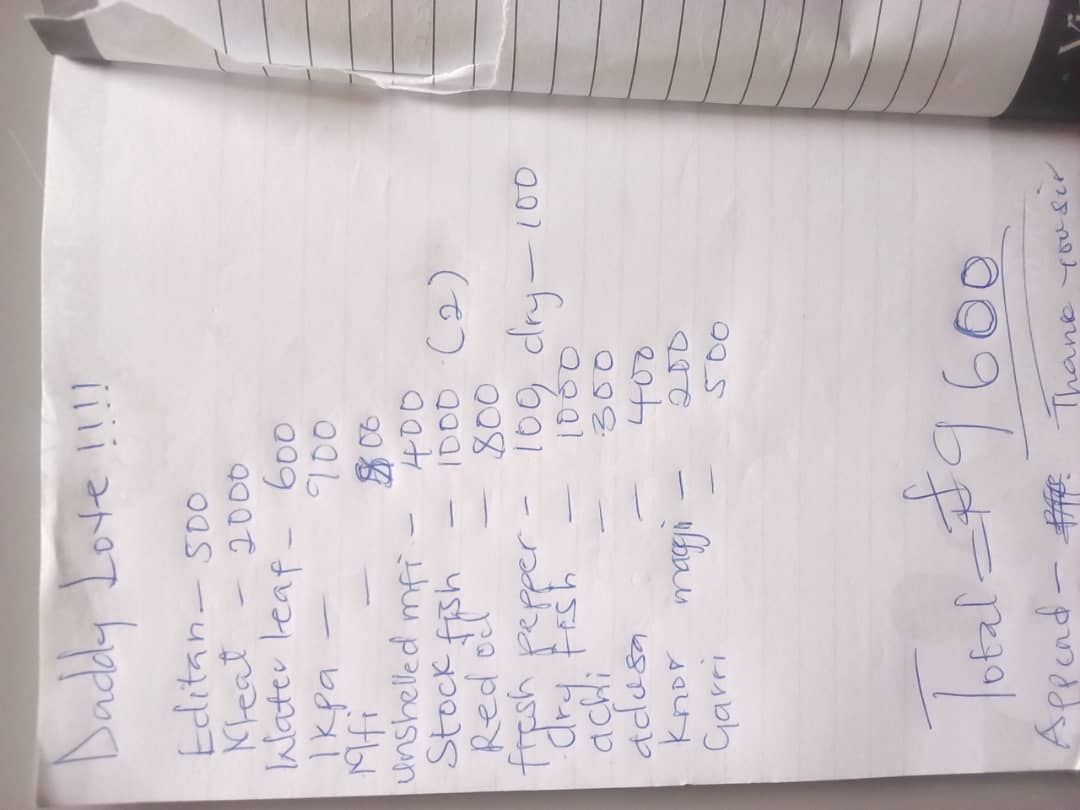 Daddy Love !!!!
Editan - 500
Meat - 2000
Water leaf - 600
Ikpa - 900
Mfi - 800
unshelled mfi - 400
Stock fish - 1000 (2)
Red oil - 800
fresh pepper - 100 dry - 100
dry fish - 1000
achi - 300
adusa - 400
Knor maggi - 200
Garri - 500
Total = 9 600
Append - Thank you sir